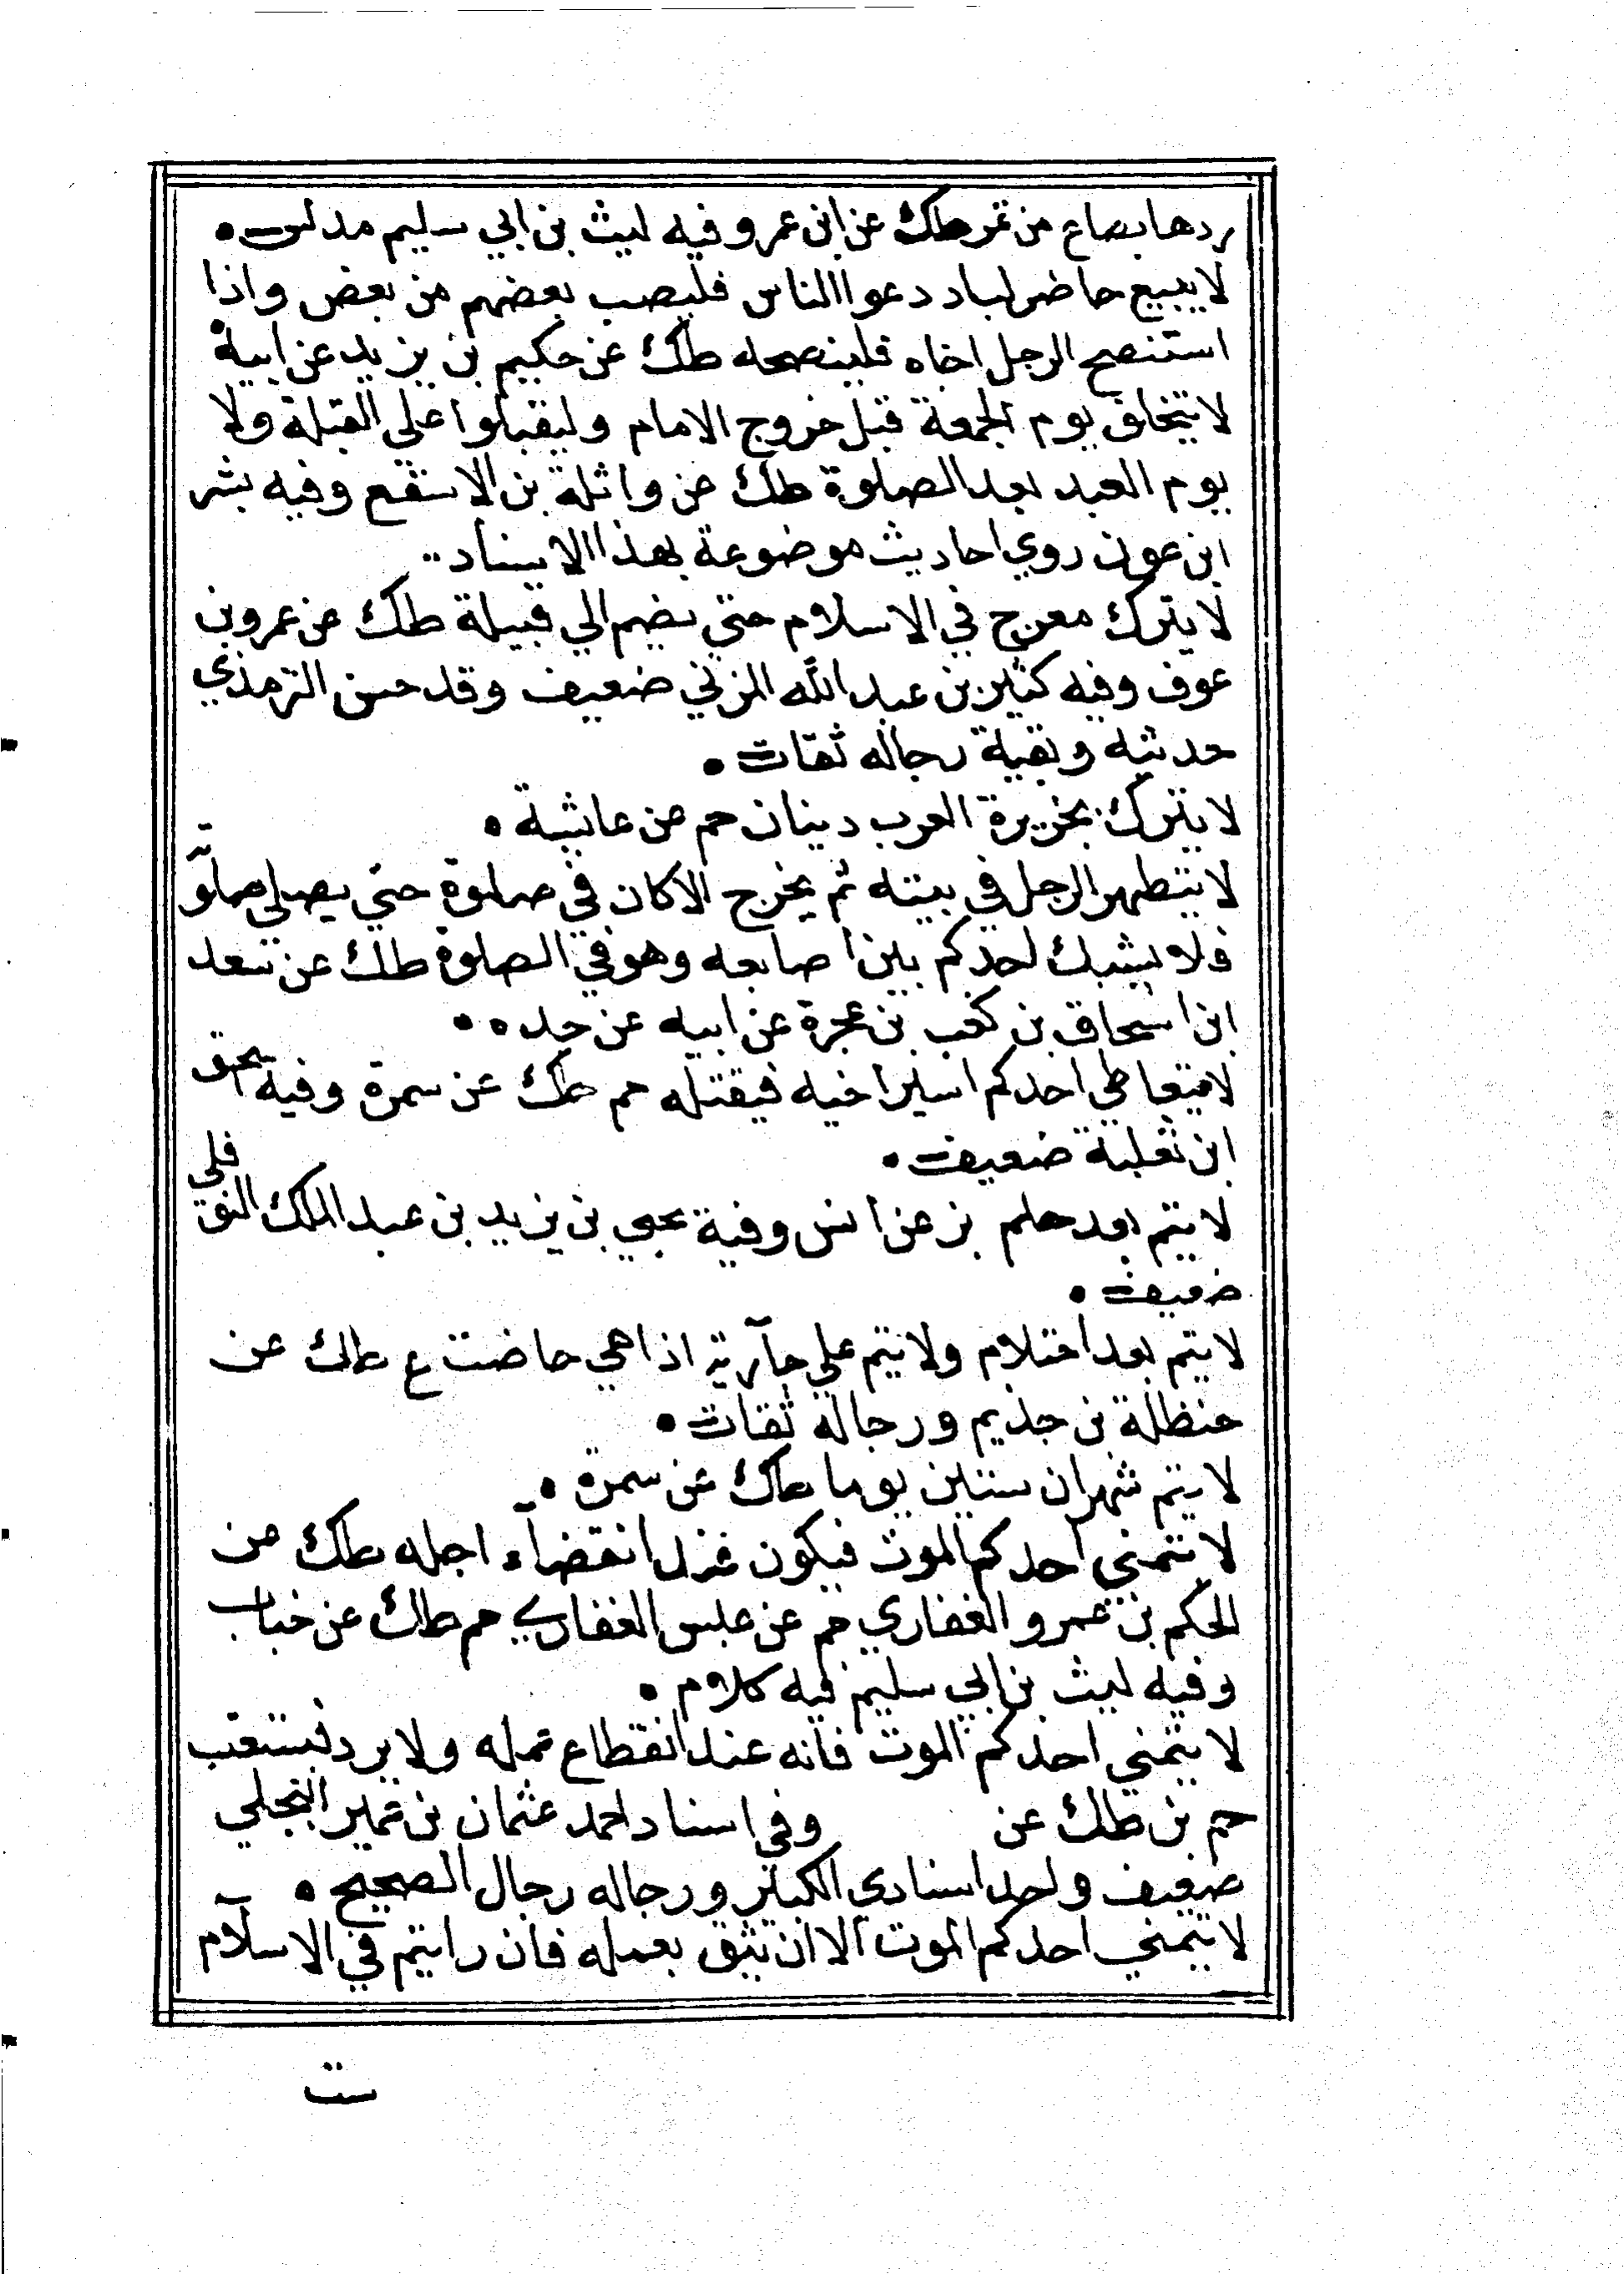 ردها بصاع من تمر طك عن ابن عمر وفيه ليث بن ابي سليم مدلس •
لا يبيع حاضر لباد دعوا الناس فليصب بعضهم من بعض واذا
استنصح الرجل اخاه فلينصحه طك عن حكيم بن يزيد عن ابيه
لا يتحلق يوم الجمعة قبل خروج الامام وليقبلوا علي القبلة ولا
يوم العيد بعد الصلوة طك عن واثلة بن الاسقع وفيه بشر
ابن عون روي احاديث موضوعة بهذا الاسناد ..
لا يترك مفرج في الاسلام حتي يضم الي قبيلة طك عن عمرو بن
عوف وفيه كثير بن عبد الله المزني ضعيف وقد حسن الترمذي
حديثه وبقية رجاله ثقات •
لا يترك بجزيرة العرب دينان حم عن عائشة •
لا يتطهر الرجل في بيته ثم يخرج الا كان في صلوة حتي يصلي صلوته
فلا يشبك احدكم بين اصابعه وهو في الصلوة طك عن سعد
ابن اسحاق بن كعب بن عجرة عن ابيه عن جده •
لا يتعاطي احدكم اسير اخيه فيقتله حم طك عن سمرة وفيه اسحق
ابن ثعلبة ضعيف •
لا يتم بعد حلم بز عن انس وفيه يحيي بن يزيد بن عبد الملك النوفلي
ضعيف •
لا يتم بعد احتلام ولا يتم علي جارية اذا هي حاضت ع طك عن
حنظلة بن حذيم ورجاله ثقات •
لا يتم شهران ستين يوما طك عن سمرة •
لا يتمني احدكم الموت فيكون عند انقضاء اجله طك عن
الحكم بن عمرو الغفاري حم عن عبس الغفاري حم طك عن خباب
وفيه ليث بن ابي سليم فيه كلام •
لا يتمني احدكم الموت فانه عند انقطاع عمله ولا يرد فيستعتب
حم بن طك عن وفي اسناد احمد عثمان بن عمير البجلي
ضعيف واحد اسنادي الكبير ورجاله رجال الصحيح •
لا يتمني احدكم الموت الا ان يثق بعمله فان رايتم في الاسلام
ست